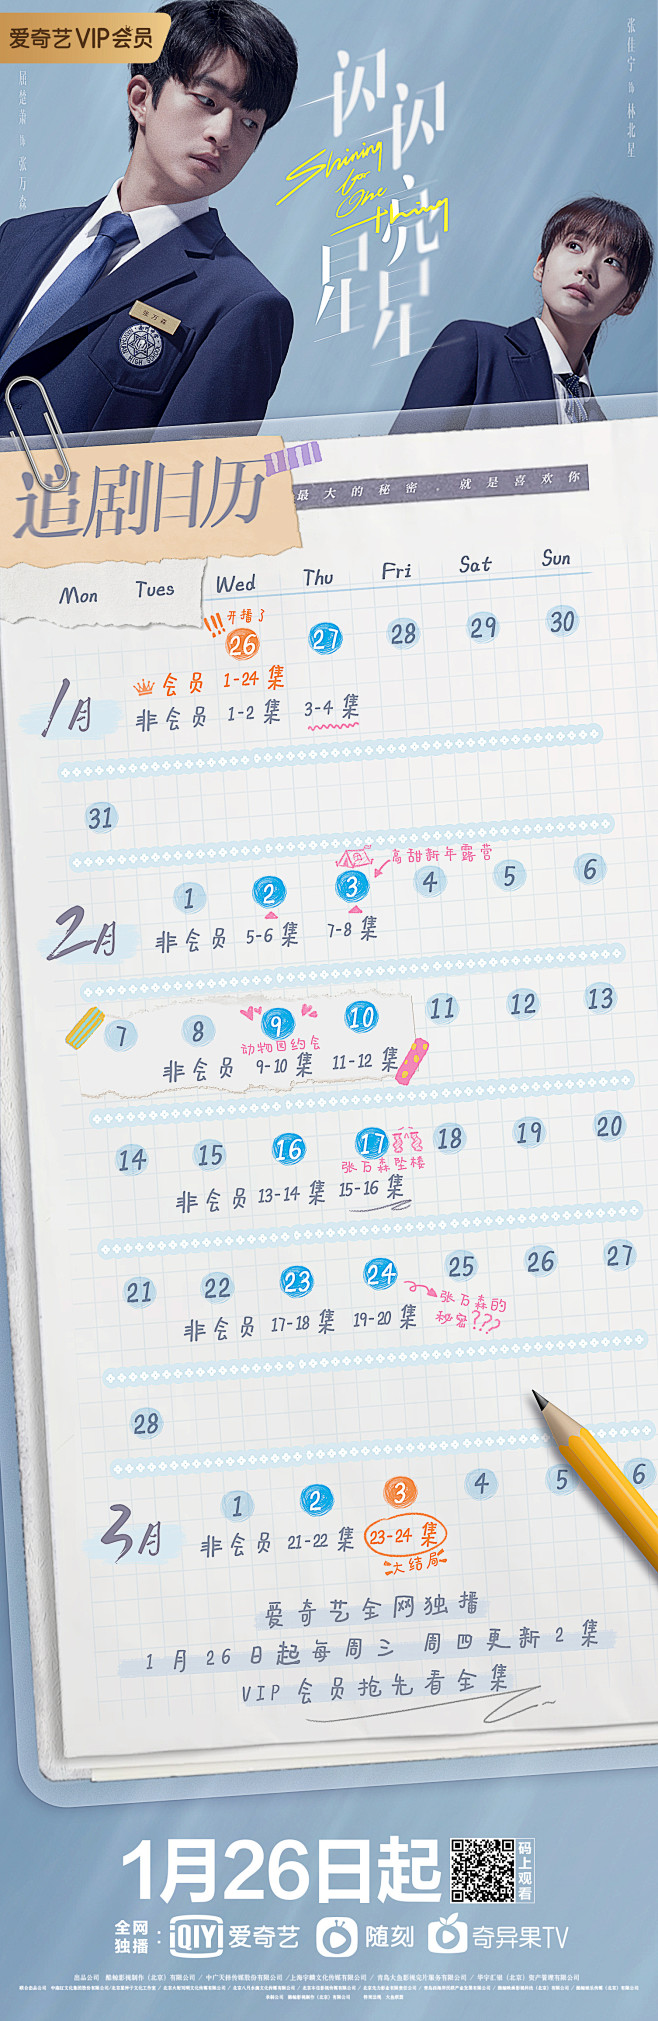 爱奇艺VIP会员
屈楚萧 饰 张万森
张佳宁 饰 林北星
闪闪亮星星
Shining
for
One
thing
张万森
追剧日历
最大的秘密,就是喜欢你
Mon Tues Wed Thu Fri Sat Sun
!!!开播了
26 27 28 29 30
1月
会员 1-24 集
非会员 1-2 集 3-4 集
31
高甜新年露营
1 2 3 4 5 6
2月
非会员 5-6 集 7-8 集
7 8 9 10 11 12 13
动物园约会
非会员 9-10 集 11-12 集
14 15 16 17 18 19 20
张万森坠楼
非会员 13-14 集 15-16 集
21 22 23 24 25 26 27
张万森的
秘密???
非会员 17-18 集 19-20 集
28
1 2 3 4 5 6
3月
非会员 21-22 集 23-24 集
大结局
爱奇艺全网独播
1月26日起每周三 周四更新2集
VIP会员抢先看全集
1月26日起
码上观看
全网独播:
iQIYI 爱奇艺 随刻 奇异果TV